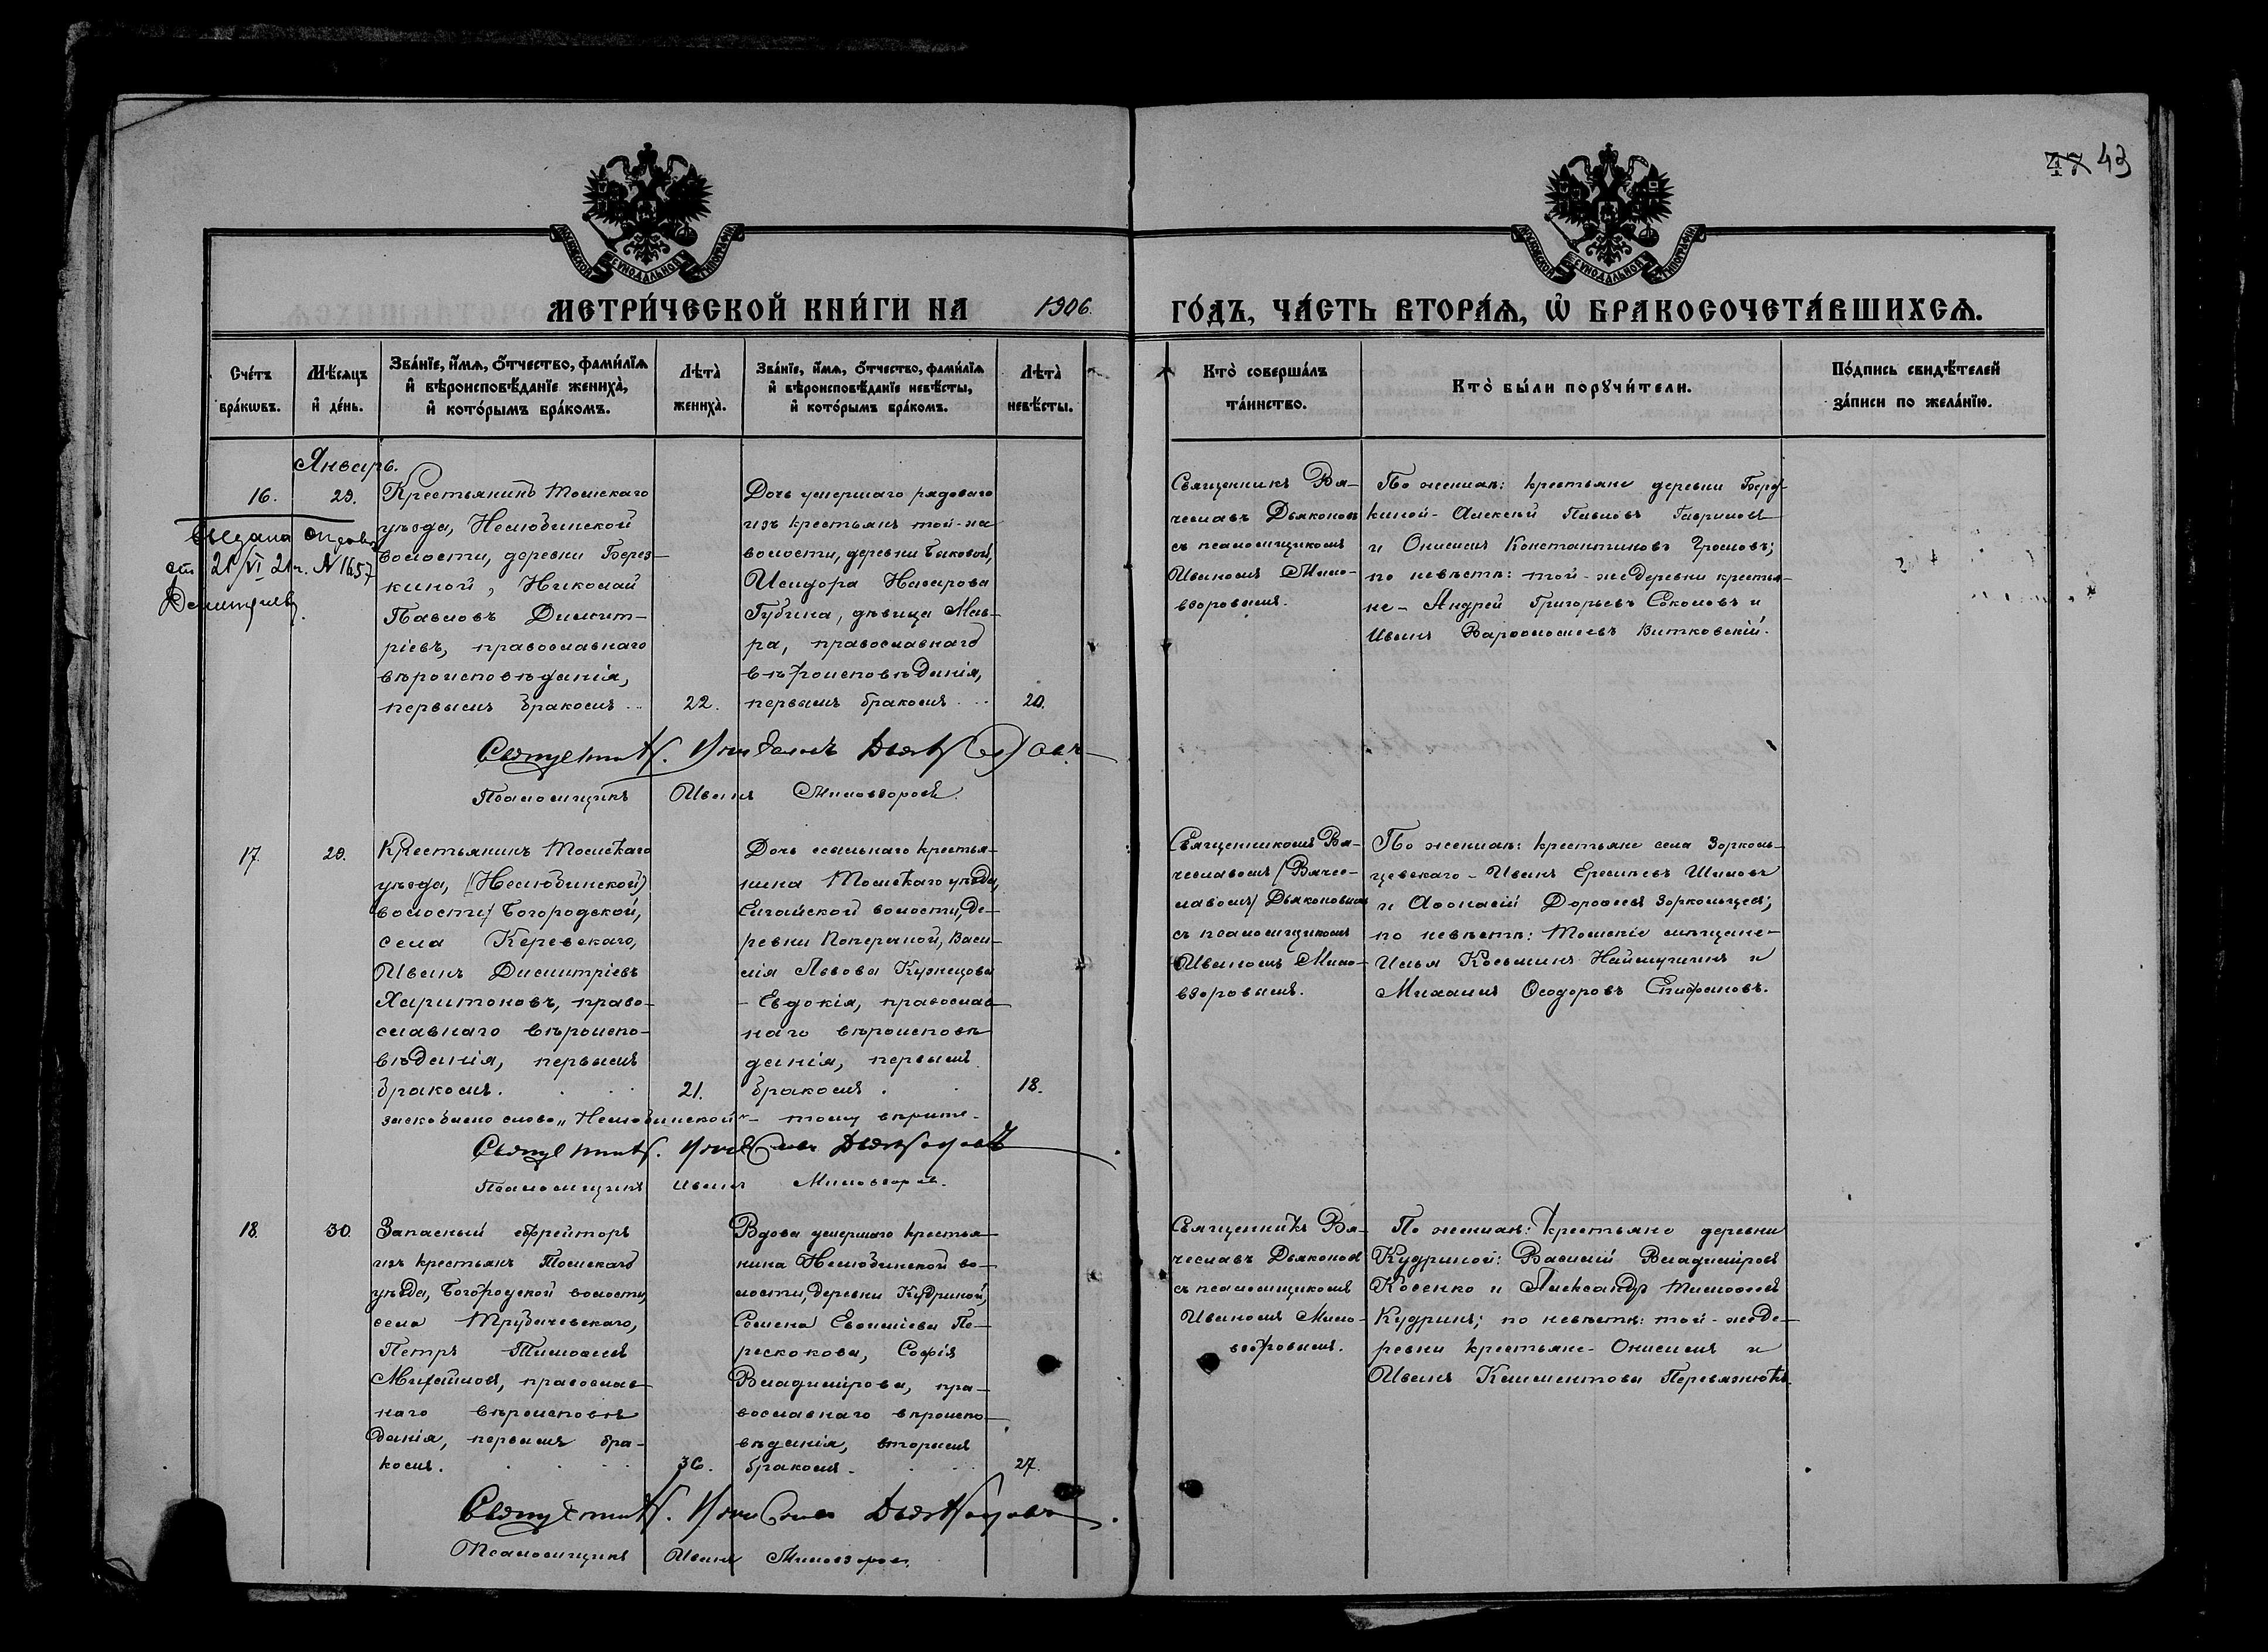 47 43
МОСКОВСКОЙ СѴНОДАЛЬНОЙ ТИПОГРАФІИ
МОСКОВСКОЙ СѴНОДАЛЬНОЙ ТИПОГРАФІИ
МЕТРИ́ЧЕСКОЙ КНИ́ГИ НА 1906. ГО́ДЪ, ЧА́СТЬ ВТОРА́Ѧ, Ѡ҆ БРАКОСОЧЕТА́ВШИХСѦ.
Сче́тъ
бра́кѡвъ.
Мѣ́сяцъ
и҆ де́нь.
Зва́нїе, и҆́мѧ, ѻ҆́тчество, фами́лїѧ
и҆ вѣроисповѣ́данїе жениха̀,
и҆ кото́рымъ бра́комъ.
Лѣта̀
жениха̀.
Зва́нїе, и҆́мѧ, ѻ҆́тчество, фами́лїѧ
и҆ вѣроисповѣ́данїе невѣ́сты,
и҆ кото́рымъ бра́комъ.
Лѣта̀
невѣ́сты.
Кто̀ соверша́лъ
та́инство.
Кто̀ бы́ли порꙋчи́тели.
По́дпись свидѣ́телей
за́писи по жела́нїю.
Январь.
16.
29.
Выдана
21/VI 21 г. N 1657
Крестьянинъ Томскаго
уѣзда, Нелюбинской
волости, деревни Берез-
киной, Николай
Павловъ Димит-
ріевъ, православнаго
вѣроисповѣданія,
первымъ бракомъ
22.
Дочь умершаго рядового
изъ крестьянъ той-же
волости, деревни Быковой,
Исидора Назарова
Губина, дѣвица Мав-
ра, православнаго
вѣроисповѣданія,
первымъ бракомъ
20.
Священникъ Вя-
чеславъ Дьяконовъ
съ псаломщикомъ
Иваномъ Мило-
взоровымъ.
По женихѣ: крестьяне деревни Берез-
киной - Алексѣй Павловъ Гавриловъ
и Онисимъ Константиновъ Громовъ;
по невѣстѣ: той-же деревни крестья-
не - Андрей Григорьевъ Соколовъ и
Иванъ Варѳоломеевъ Витковскій.
Священникъ Вячеславъ Дьяконовъ
Псаломщикъ Иванъ Миловзоровъ.
17.
29.
Крестьянинъ Томскаго
уѣзда, (Нелюбинской)
волости) Богородской,
села Керевскаго,
Иванъ Димитріевъ
Харитоновъ, право-
славнаго вѣроиспо-
вѣданія, первымъ
бракомъ.
21.
Дочь ссыльнаго крестья-
нина Томскаго уѣзда,
Елгайской волости, де-
ревни Поперечной, Васи-
лія Львова Кузнецова
- Евдокія, православ-
наго вѣроисповѣ-
данія, первымъ
бракомъ.
18.
Священникомъ Вя-
чеславомъ (Вячес-
лавомъ) Дьяконовымъ
съ псаломщикомъ
Иваномъ Мило-
взоровымъ.
По женихѣ: крестьяне села Зоркаль-
цевскаго - Иванъ Шиловъ
и Аѳонасій Дороѳеевъ Зоркальцевъ;
по невѣстѣ: Томскіе мѣщане-
Илья Косьминъ и
Михаилъ Ѳеодоровъ Епифановъ.
заскоблено слово „Нелюбинской" - тому вѣрить.
Священникъ Вячеславъ Дьяконовъ
Псаломщикъ Иванъ Миловзоровъ.
18.
30.
Запасный ефрейторъ
изъ крестьянъ Томскаго
уѣзда, Богородской волости,
села Трубачевскаго,
Петръ Тимоѳеевъ
Михайловъ, православ-
наго вѣроисповѣ-
данія, первымъ бра-
комъ.
36.
Вдова умершаго крестья-
нина Нелюбинской во-
лости, деревни Кудриной,
Семена Евѳиміева Пе-
рескокова, Софія
Владимірова, пра-
вославнаго вѣроиспо-
вѣданія, вторымъ
бракомъ.
27.
Священникъ Вя-
чеславъ Дьяконовъ
съ псаломщикомъ
Иваномъ Мило-
взоровымъ.
По женихѣ: крестьяне деревни
Кудриной: Василій Владиміровъ
Косенко и Александръ Тимоѳеевъ
Кудринъ; по невѣстѣ: той-же де-
ревни крестьяне - Онисимъ и
Иванъ Климентовы
Священникъ Вячеславъ Дьяконовъ.
Псаломщикъ Иванъ Миловзоровъ.